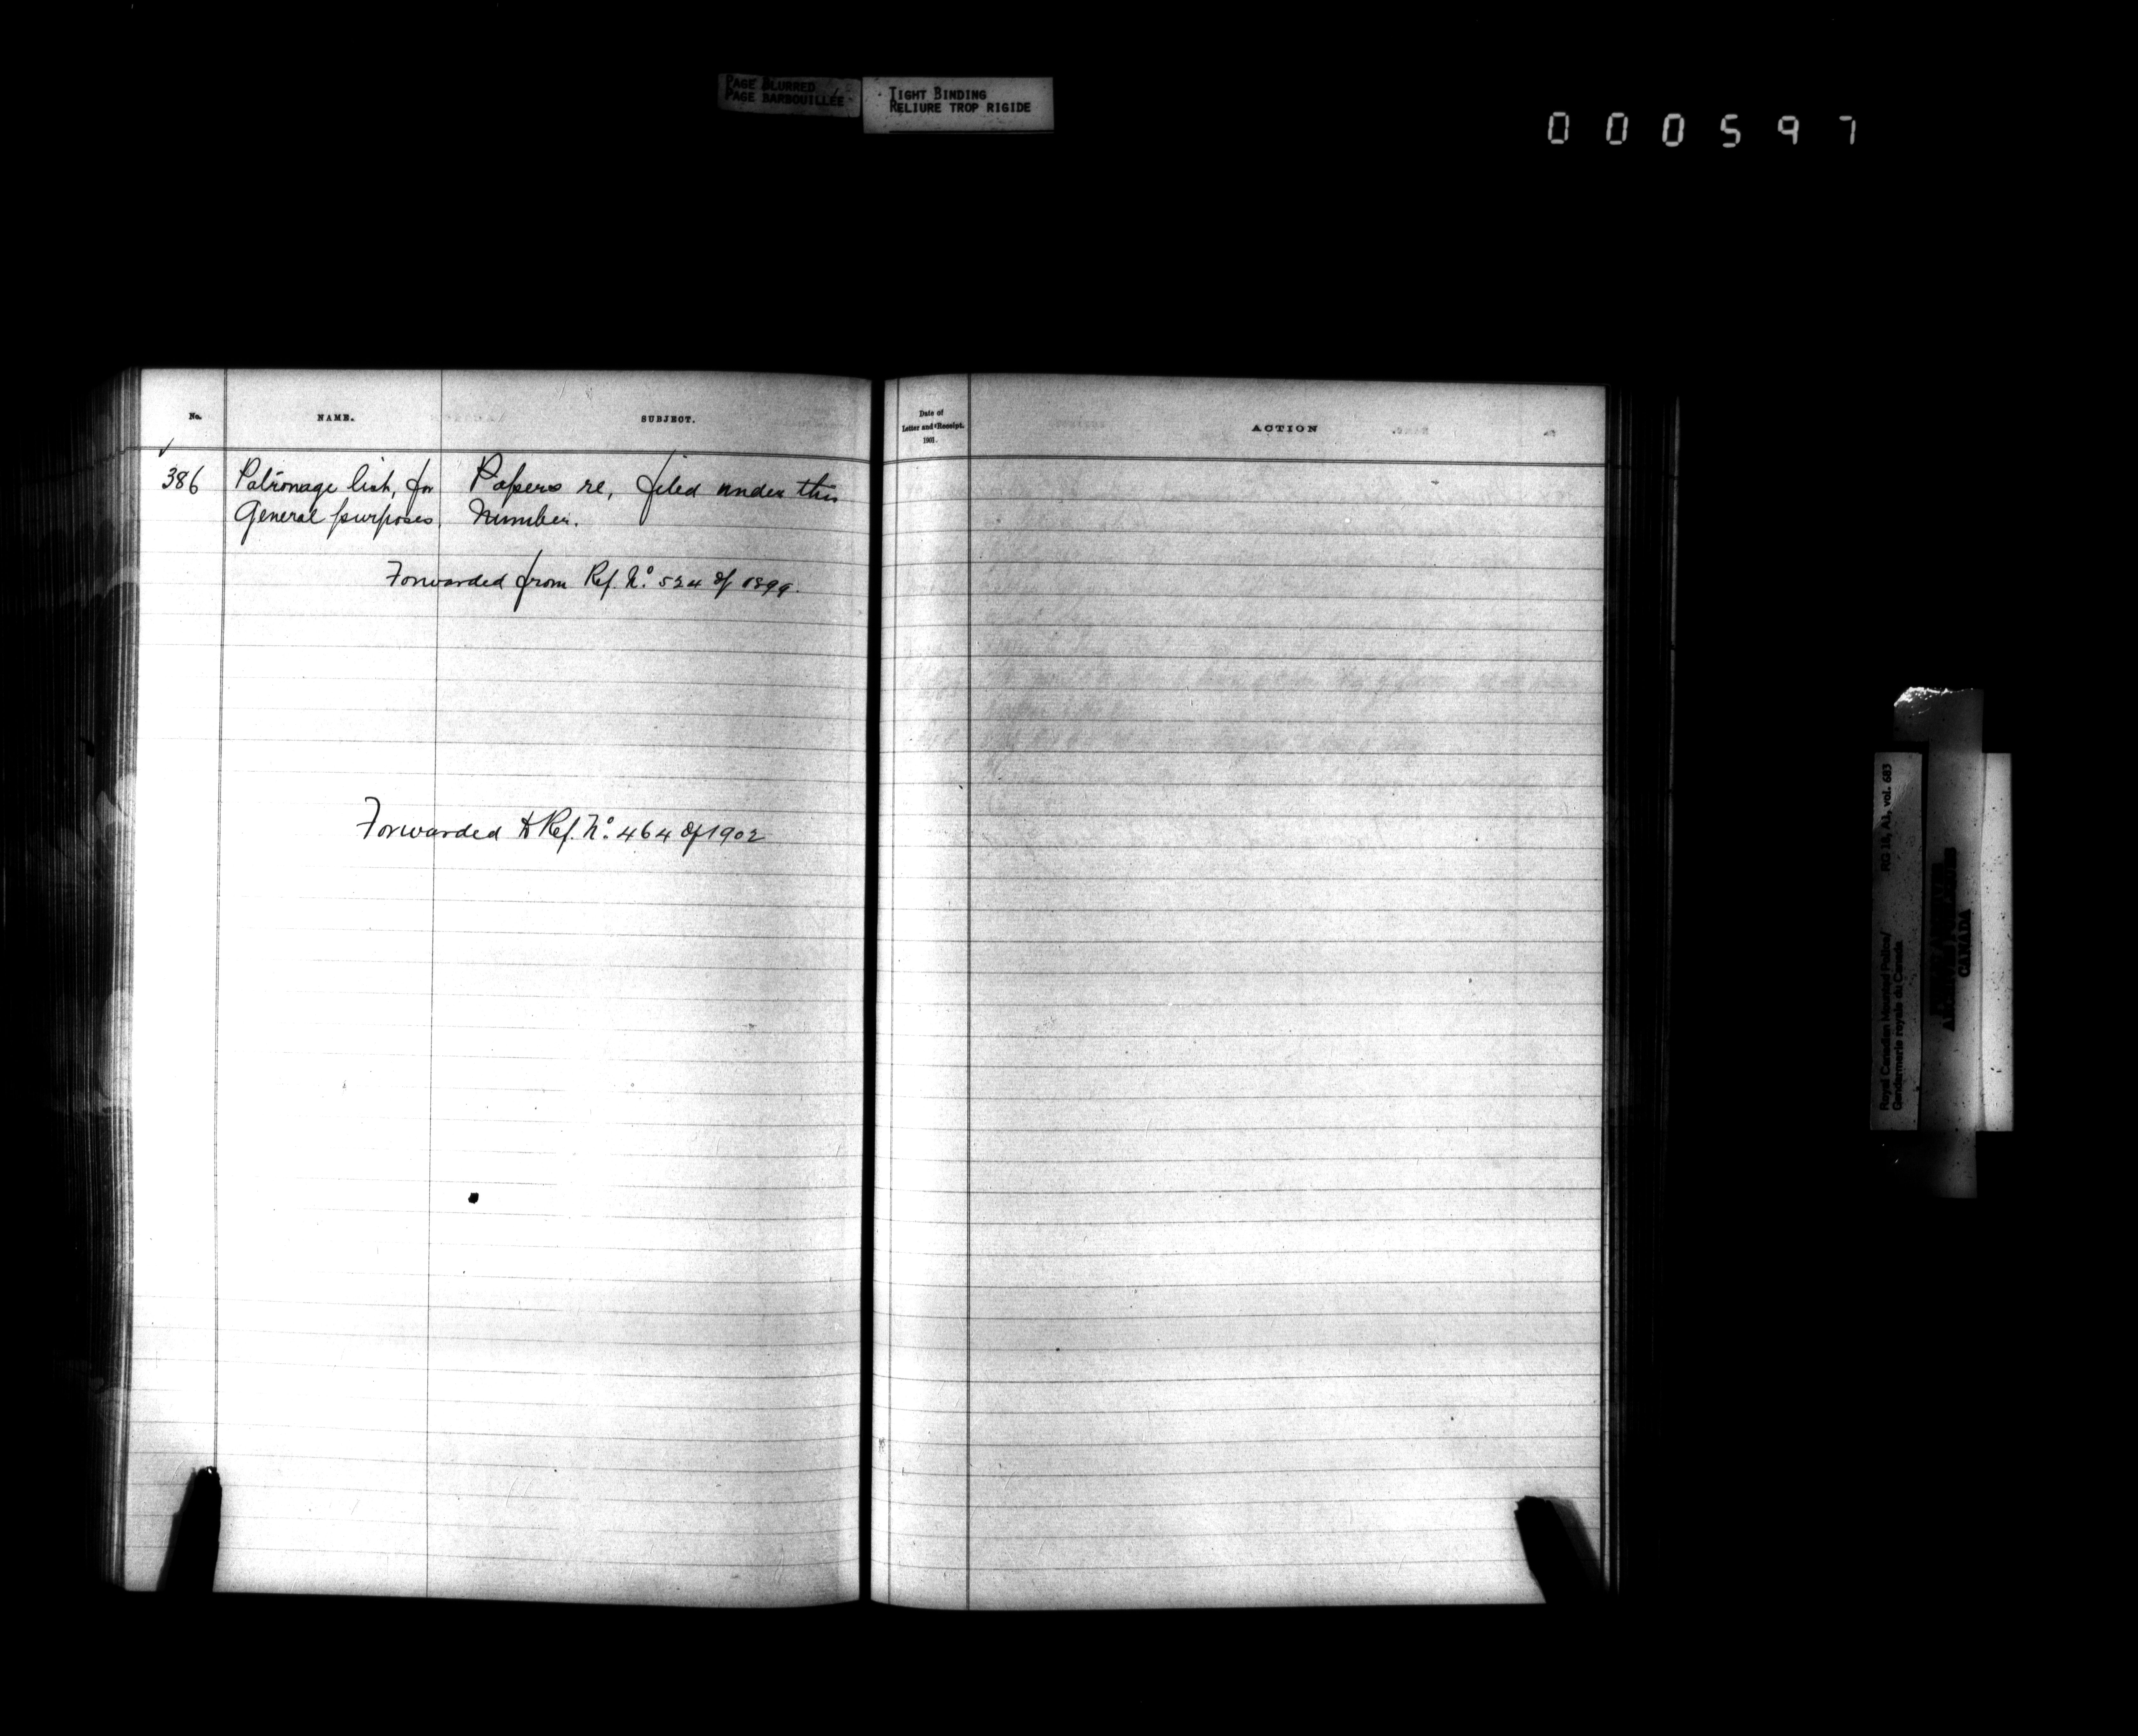 PAGE BLURRED
PAGE BARBOUILLÉE
TIGHT BINDING
RELIURE TROP RIGIDE
000597
No. NAME. SUBJECT.
Date of
Letter and Receipt.
1901.
ACTION
386 Patronage list, for Papers re, filed under this
General purposes. Number.
Forwarded from Ref. No. 524 of 1899.
Forwarded to Ref. No. 464 of 1902
Royal Canadian Mounted Police/ RG 18, A1, vol. 683
Gendarmerie royale du Canada
CANADA